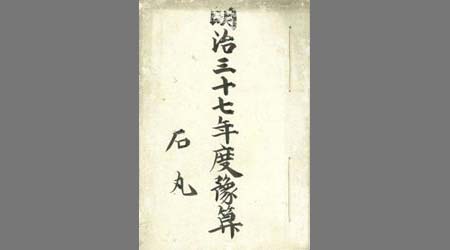 明治三十七年度豫算
石丸